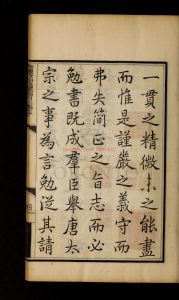 一貫之精微未之能盡
而惟是謹嚴之義守而
弗失簡正之旨志而必
勉書既成羣臣舉唐太
宗之事為言勉從其請